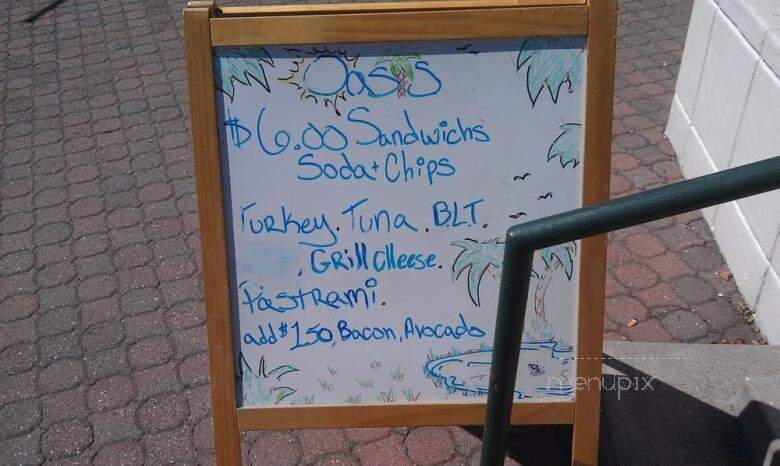 Oasis
$6.00 Sandwichs
Soda + Chips
Turkey. Tuna. B.L.T.
. Grill Cheese.
Pastrami.
add $1.50, Bacon, Avocado
menupix